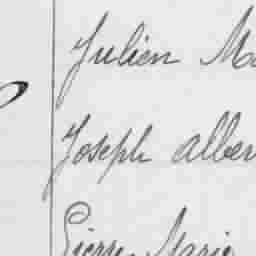 Julien Ma
Joseph alber
Pierre Marie